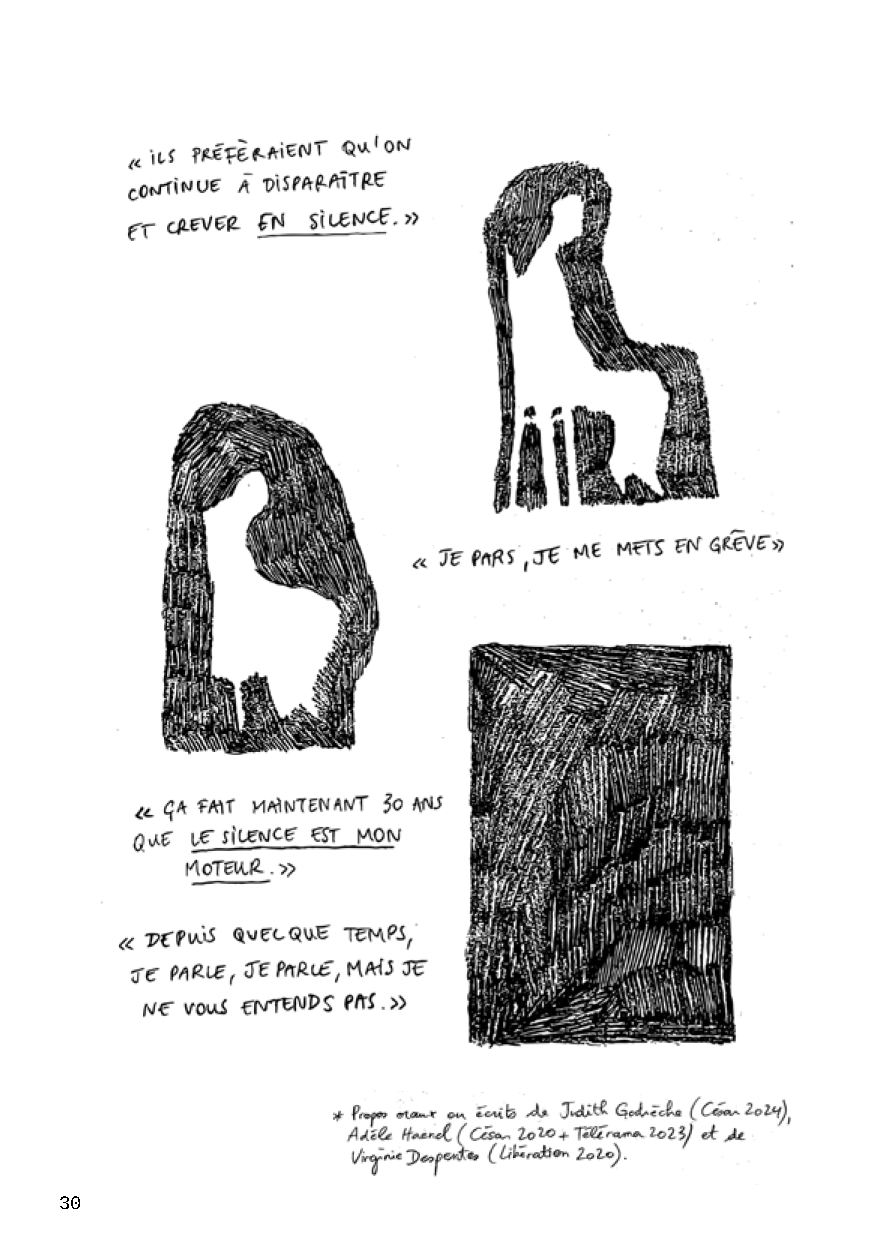 « ILS PRÉFÈRAIENT QU'ON
CONTINUE À DISPARAÎTRE
ET CREVER EN SILENCE. »
« JE PARS, JE ME METS EN GRÊVE »
« ÇA FAIT MAINTENANT 30 ANS
QUE LE SILENCE EST MON
MOTEUR. »
« DEPUIS QUELQUE TEMPS,
JE PARLE, JE PARLE, MAIS JE
NE VOUS ENTENDS PAS. »
* Propos oraux ou écrits de Judith Godrèche (César 2024),
Adèle Haenel (César 2020 + Télérama 2023) et de
Virginie Despentes (Libération 2020).
30